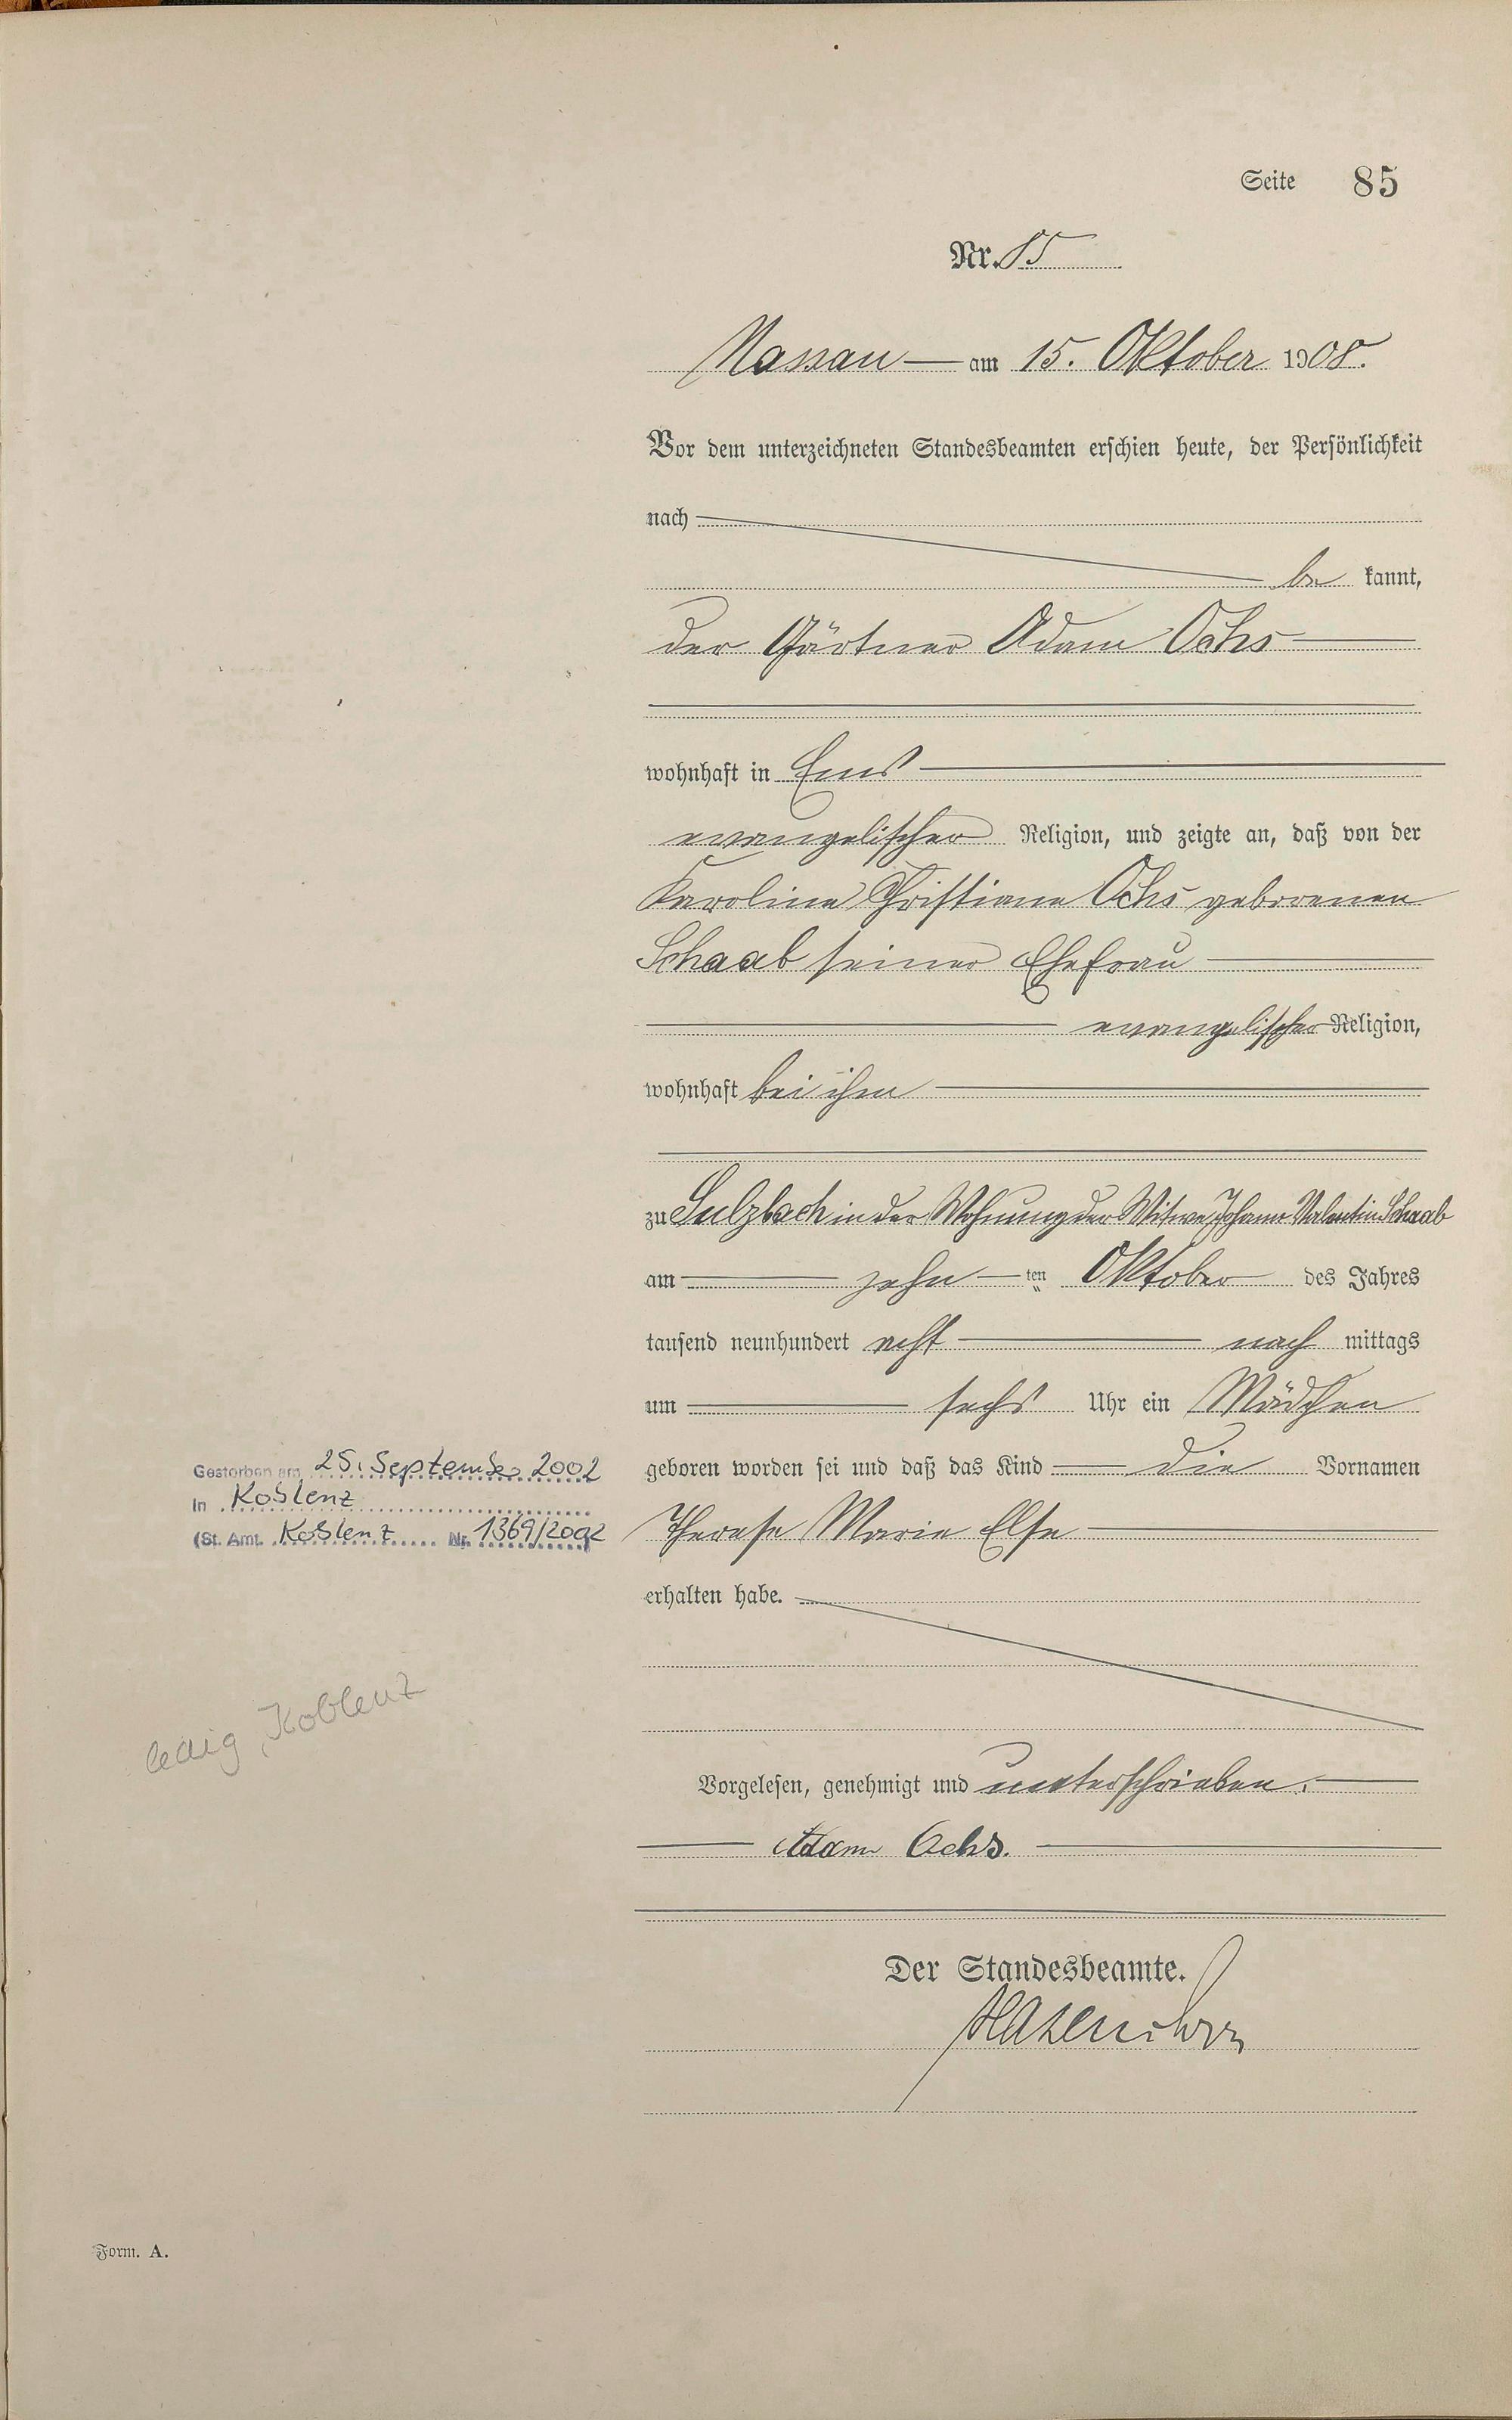 Seite 85
Nr. 85
Nassau am 15. Oktober 1908.
Vor dem unterzeichneten Standesbeamten erschien heute, der Persönlichkeit
nach
be kannt,
der Gärtner Adam Ochs
wohnhaft in Ems
evangelischer Religion, und zeigte an, daß von der
Karoline Christiane Ochs geborenen
Schaab seiner Ehefrau
evangelischer Religion,
wohnhaft bei ihm
zu Sulzbach in der Wohnung der Witwe Johann Valentin Schaab
am zehn ten Oktober des Jahres
tausend neunhundert acht nach mittags
um sechs Uhr ein Mädchen
geboren worden sei und daß das Kind die Vornamen
Therese Marie Else
erhalten habe.
Vorgelesen, genehmigt und unterschrieben.
Adam Ochs.
Der Standesbeamte.
Gestorben am 25. September 2002
in Koblenz
(St. Amt. Koblenz Nr. 1369/2002
ledig, Koblenz
Form. A.